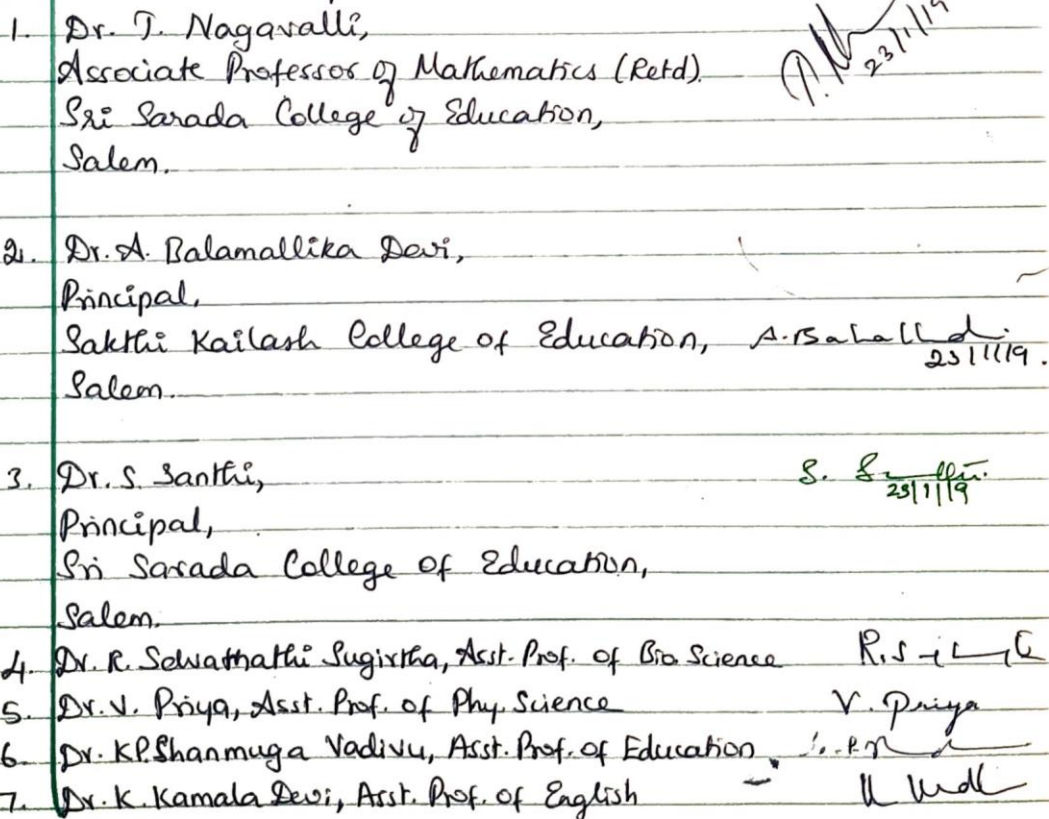 1. Dr. T. Nagavalli,
Associate Professor of Mathematics (Retd).
23/1/19
Sri Sarada College of Education,
Salem.
2. Dr. A. Balamallika Devi,
Principal,
Sakthi Kailash College of Education,
23/1/19.
Salem.
3. Dr. S. Santhi,
23/1/19
Principal,
Sri Sarada College of Education,
Salem.
4. Dr. R. Selvamathi Sugirtha, Asst. Prof. of Bio. Science
5. Dr. V. Priya, Asst. Prof. of Phy. Science V. Priya
6. Dr. KP. Shanmuga Vadivu, Asst. Prof. of Education
7. Dr. K. Kamala Devi, Asst. Prof. of English